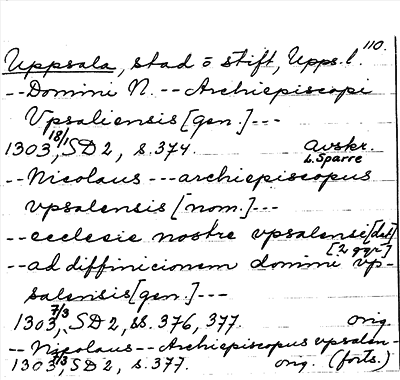 110.
Uppsala, stad o stift, Upps. l.
-- Domini N. -- Archiepiscopi
Vpsaliensis [gen.] ---
1303 18/1, SD 2, s. 374. avskr.
L. Sparre
-- Nicolaus --- archiepiscopus
vpsalensis [nom.] ---
-- ecclesie nostre vpsalensi [dat]
[2 ggr]
-- ad diffinicionem domini vp-
salensis [gen.] ---
1303 7/3, SD 2, ss. 376, 377. orig.
-- Nicolaus -- Archiepiscopus vpsalen-
1303 7/3, SD 2, s. 377. orig. (forts)